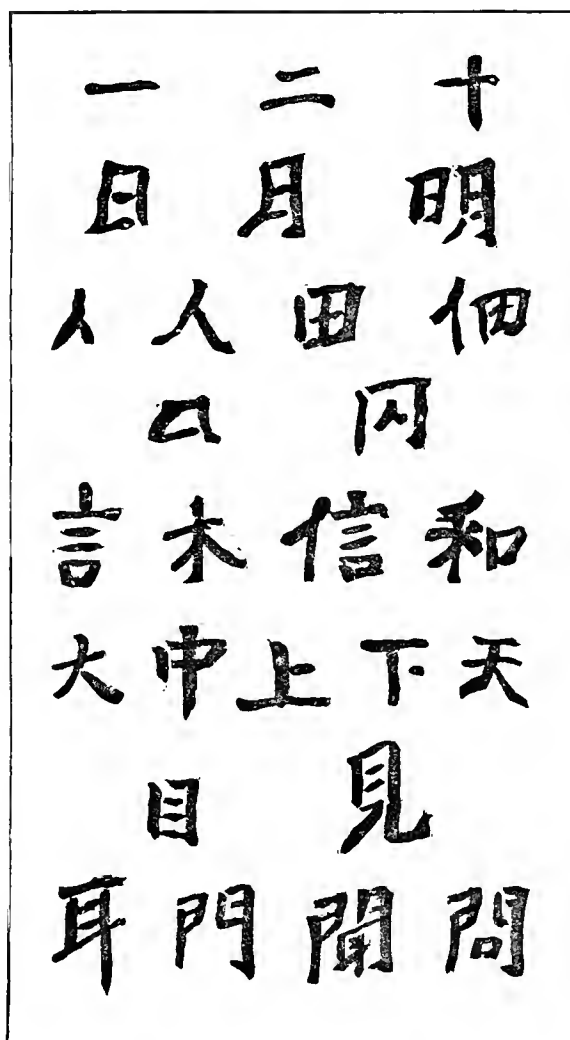 一 二 十
日 月 明
人 人 田 佃
口 囚
言 木 信 和
大 中 上 下 天
目 見
耳 門 聞 問